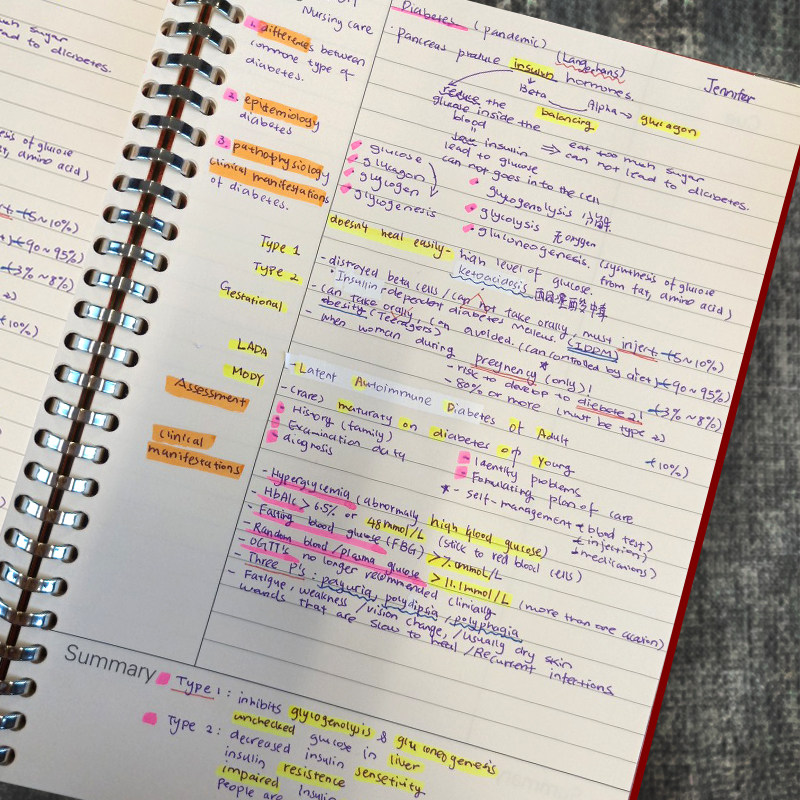 Nursing care
1. differences between
common type of
diabetes.
2. epidemiology
diabetes
3. pathophysiology
clinical manifestations
of diabetes.
Type 1
Type 2
Gestational
LADA
MODY
Assessment
clinical
manifestations
Diabetes (pandemic)
Jennifer
(Langerhans)
· Pancreas produce insulin hormones.
Beta
Alpha → glucagon
balancing
reduce the
glucose inside the
blood
insulin
lead to glucose
can not goes into the cell
⇒ eat too much sugar
can not lead to diabetes.
glucose
glucagon
glycogen
glycogenesis
glycogenolysis 分解
glycolysis 无oxygen
gluconeogenesis. (synthesis of glucose
from fat, amino acid)
doesn't heal easily - high level of glucose.
ketoacidosis
- distroyed beta cells / can not take orally, must inject (5~10%)
* Insulin dependent diabetes (IDDM)
- can take orally, can avoided. (can controlled by diet) (90~95%)
obesity (Teenagers)
- when woman during pregnancy (only)!
- risk to develop to diebete 2! (3%~8%)
- 80% or more (must be type 2)
- Latent Autoimmune Diabetes of Adult
- (rare) maturaty on diabetes of Young
(10%)
History (family)
Examination data
diagnosis
Identify problems
Formulating plan of care
* - self-management (blood test)
(injection)
(medications)
- Hyperglycemia (abnormally high blood glucose)
- HbA1c > 6.5% or 48 mmol/L (stick to red blood cells)
- Fasting blood glucose (FBG) > 7.0mmol/L
- Random blood/plasma glucose > 11.1mmol/L (more than one occasion)
- OGTT's no longer recommended clinically
- Three P's : polyuria, polydipsia, polyphagia
- Fatigue, weakness / vision change, / usually dry skin
wounds that are slow to heal / Recurrent infections
Summary
Type 1 : inhibits glycogenolysis & gluconeogenesis
unchecked glucose in liver
Type 2 : decreased insulin sensetivity
insulin resistence
impaired insulin
People are
much sugar
lead to diabetes.
esis of glucose
t, amino acid)
(5~10%)
(90~95%)
(3%~8%)
(10%)